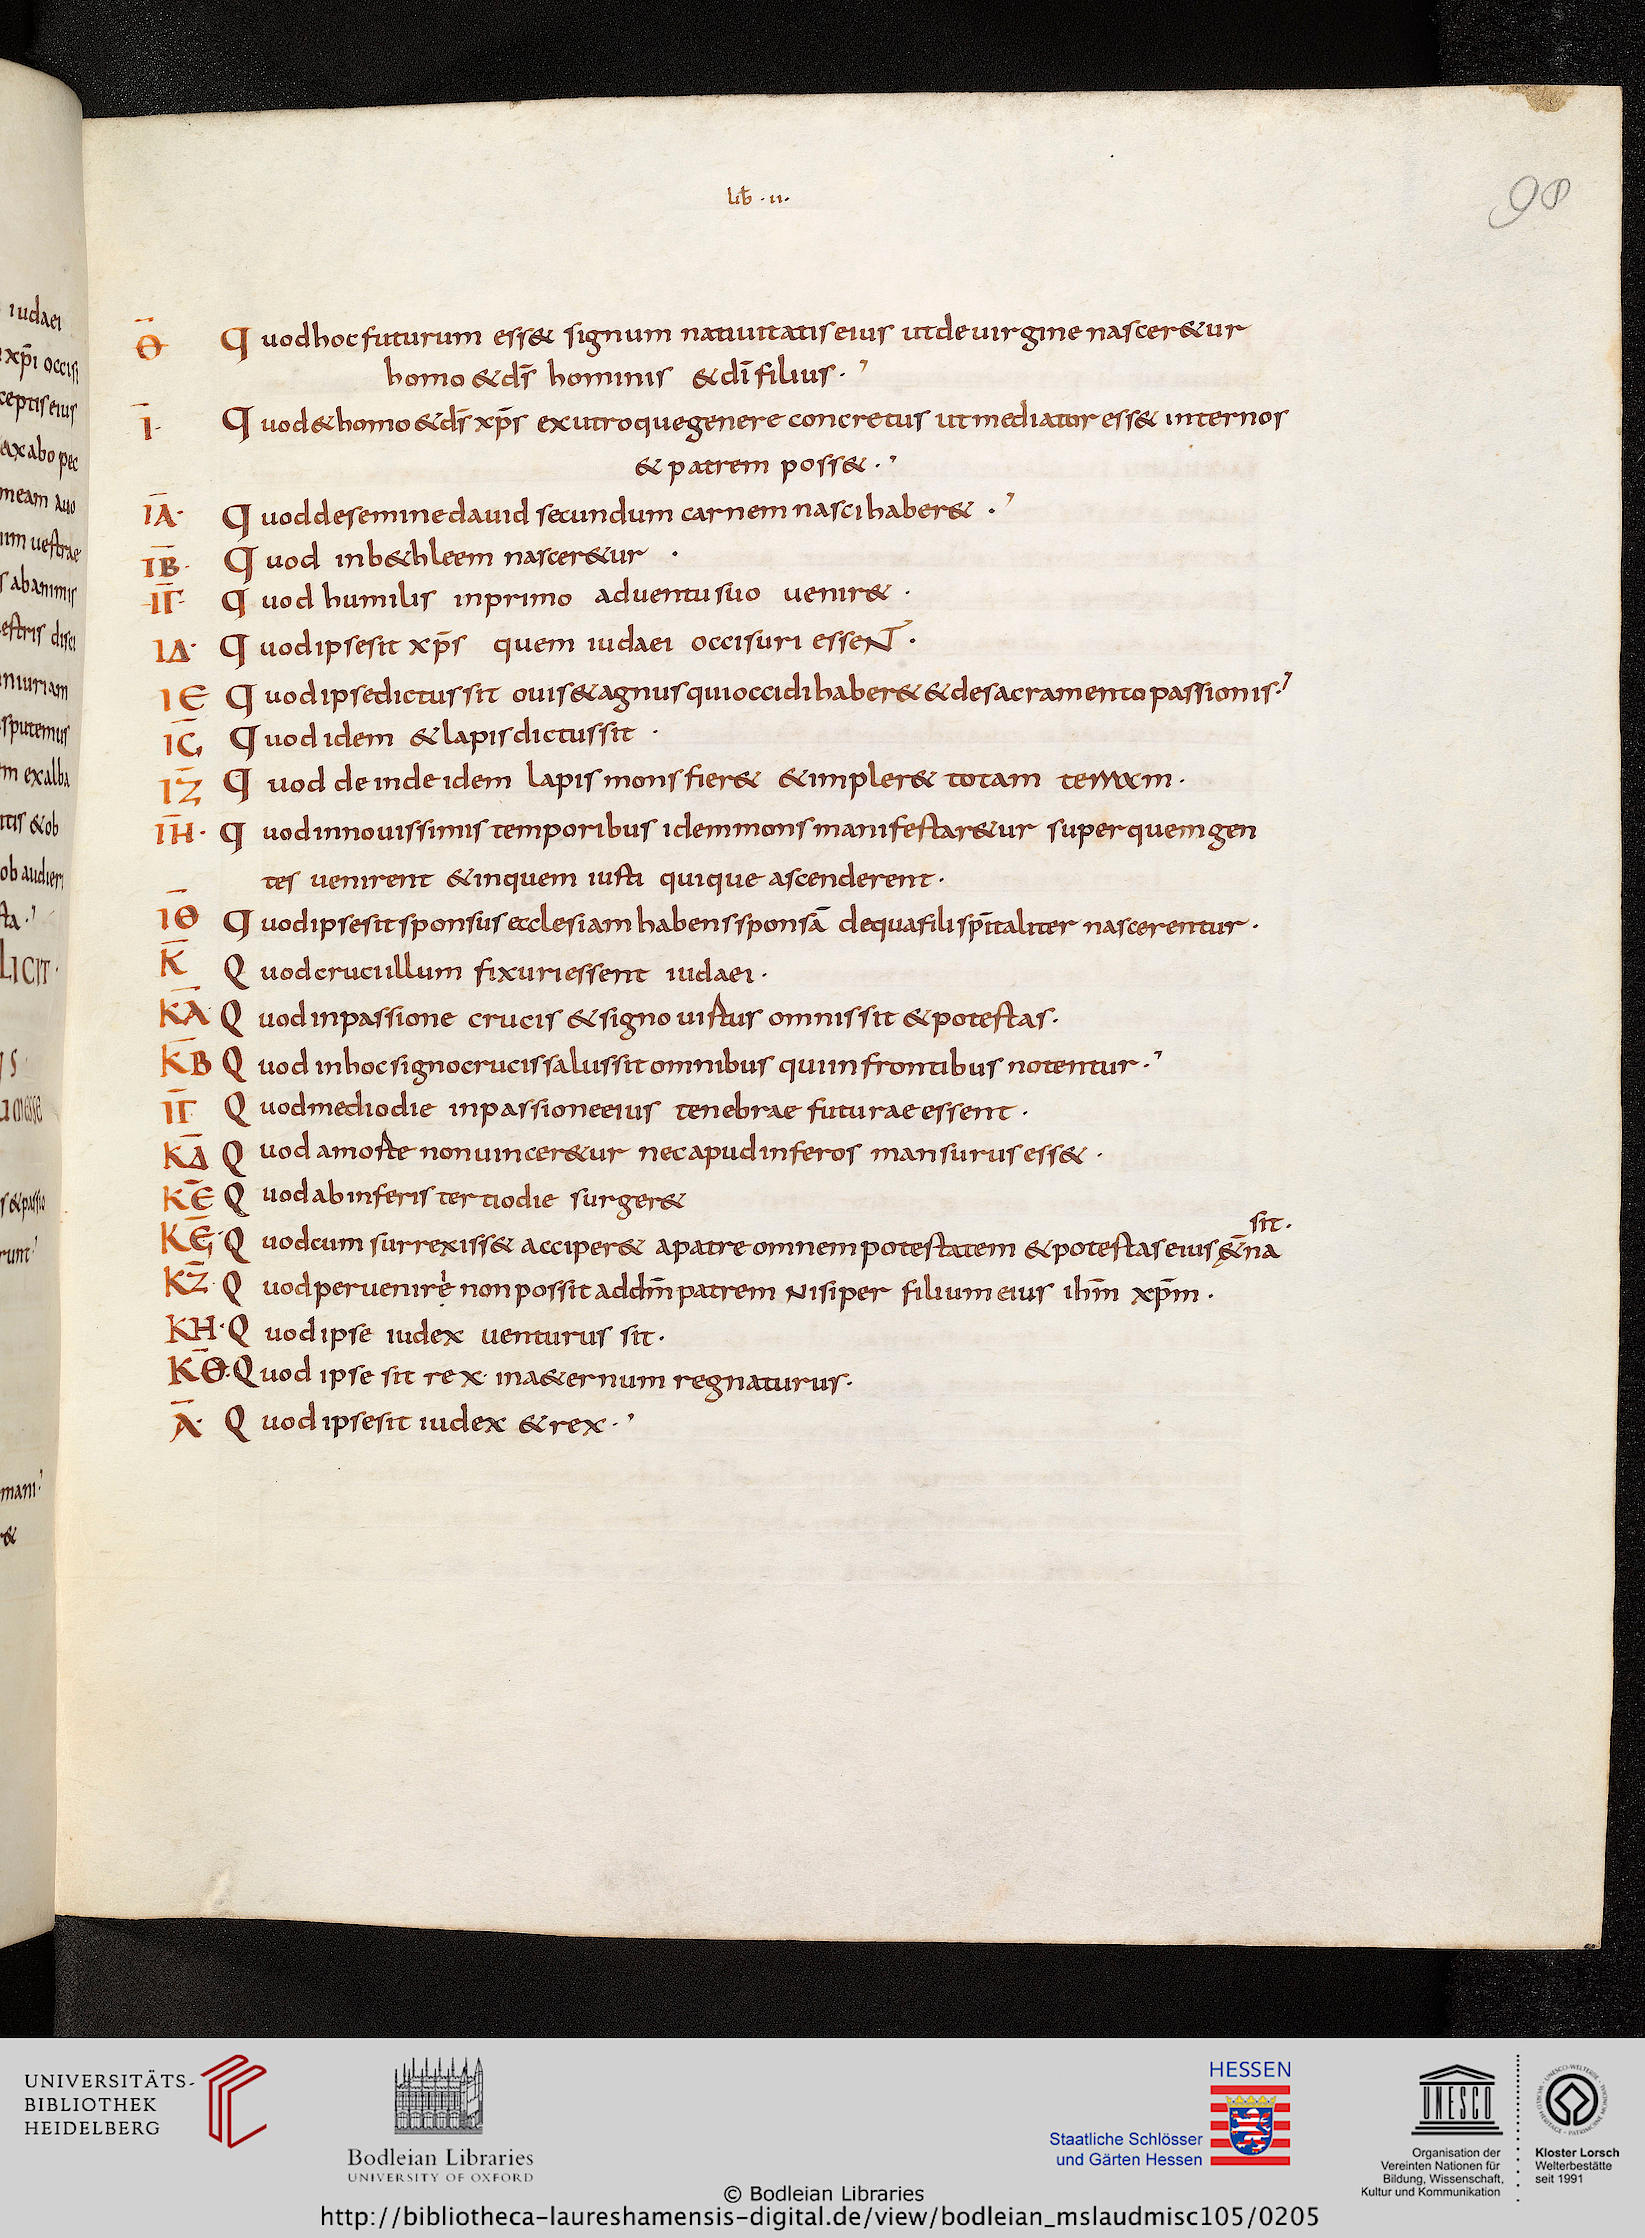 lib̄ . ii.
98
Θ̄ Quod hoc futurum ess& signum natiuitatis eius ut de uirgine nascer&ur
homo & ds̄ hominis & dī filius.
Ī. Quod & homo & ds̄ xp̄s ex utroque genere concretus ut mediator ess& inter nos
& patrem poss&.
IĀ. Quod de semine dauid secundum carnem nasci haber&.
IB̄. Quod in b&hleem nascer&ur.
IΓ̄. Quod humilis in primo aduentu suo uenir&.
IΔ. Quod ipse sit xp̄s quem iudaei occisuri essent.
IE Quod ipse dictus sit ouis & agnus qui occidi haber& & de sacramento passionis.
IϚ̄ Quod idem & lapis dictus sit.
IZ̄ Quod deinde idem lapis mons fier& & impler& totam terram.
IH̄. Quod in nouissimis temporibus idem mons manifestar&ur super quem gen
tes uenirent & in quem iusti quique ascenderent.
IΘ̄ Quod ipse sit sponsus ecclesiam habens sponsā de qua fili sp̄italiter nascerentur.
K̄ Quod cruci illum fixuri essent iudaei.
KĀ Quod in passione crucis & signo uirtus omnis sit & potestas.
KB̄ Quod in hoc signo crucis salus sit omnibus qui in frontibus notentur.
IΓ̄ Quod medio die in passione eius tenebrae futurae essent.
KΔ̄ Quod a morte non uincer&ur nec apud inferos mansurus ess&.
KĒ Quod ab inferis tertio die surger&
sit.
KϚ̄ Quod cum surrexiss& acciper& a patre omnem potestatem & potestas eius &̄na
KZ̄. Quod peruenire non possit ad dm̄ patrem nisi per filium eius ihm̄ xp̄m.
KH. Quod ipse iudex uenturus sit.
KΘ̄. Quod ipse sit rex in a&ernum regnaturus.
Ā. Quod ipse sit iudex & rex.
UNIVERSITÄTS-
BIBLIOTHEK
HEIDELBERG
Bodleian Libraries
UNIVERSITY OF OXFORD
HESSEN
Staatliche Schlösser
und Gärten Hessen
UNESCO
Organisation der
Vereinten Nationen für
Bildung, Wissenschaft,
Kultur und Kommunikation
Kloster Lorsch
Welterbestätte
seit 1991
© Bodleian Libraries
http://bibliotheca-laureshamensis-digital.de/view/bodleian_mslaudmisc105/0205